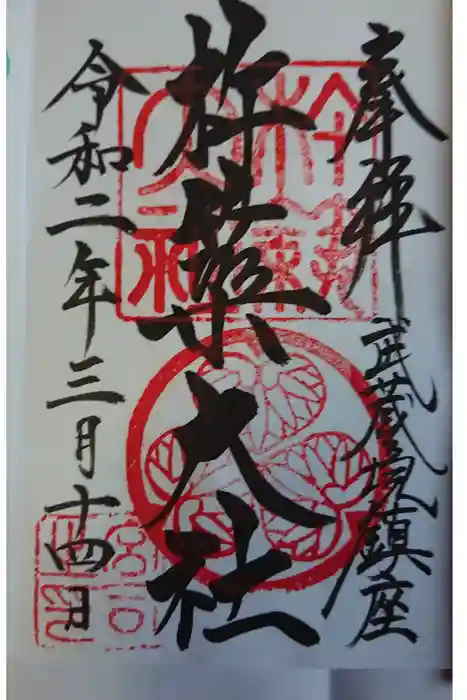 奉拝 武蔵境鎮座
杵築大社
令和二年三月十四日